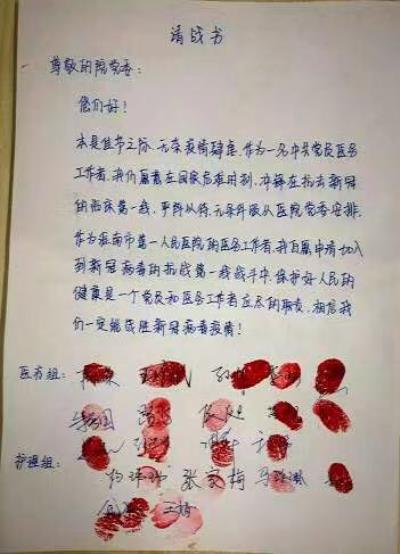 请战书
尊敬的院党委：
您们好！
本是佳节之际，无奈疫情肆虐，作为一名中共党员医务
工作者，我们愿意在国家危难时刻，冲锋在抗击新冠
的临床第一线，严阵以待，无条件服从医院党委安排，
作为淮南市第一人民医院的医务工作者，我自愿申请加入
到新冠病毒的抗战第一线战斗中，保护好人民的
健康是一个党员和医务工作者应尽的职责，相信我
们一定能战胜新冠病毒疫情！
医疗组：
护理组：
张家梅
王婧